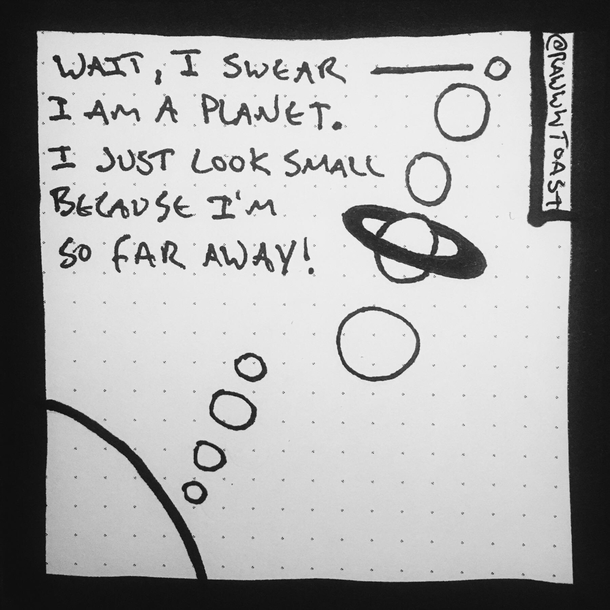 WAIT, I SWEAR
I AM A PLANET.
I JUST LOOK SMALL
BECAUSE I'M
SO FAR AWAY!
@RAWWWTOAST